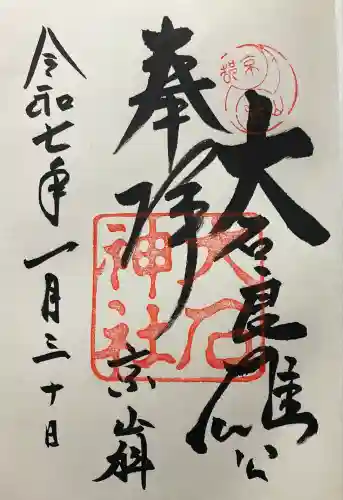 大石良雄公
奉拝
大石
神社
京山科
令和七年一月三十日